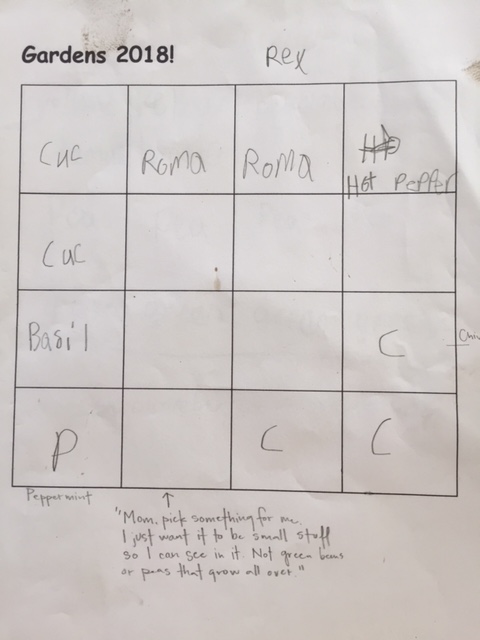 Gardens 2018!
Rex
Cuc
Roma
Roma
Hot Pepper
Cuc
Basil
C
P
C
C
Peppermint
"Mom, pick something for me.
I just want it to be small stuff
so I can see in it. Not green beans
or peas that grow all over."